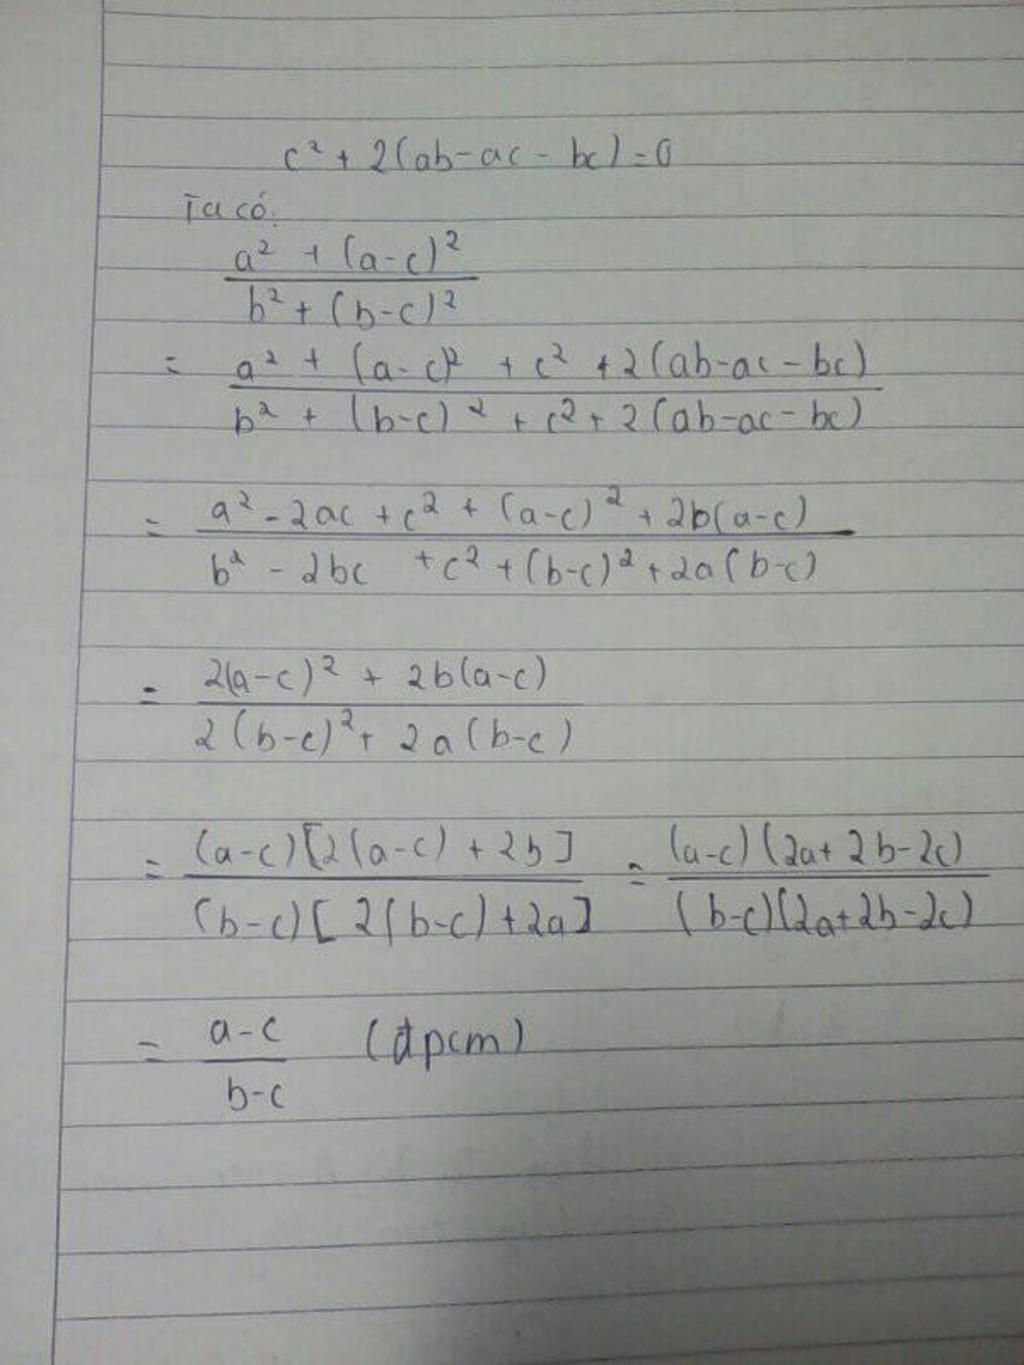 c² + 2(ab-ac-bc)=0
Ta có.
a² + (a-c)²
b² + (b-c)²
= a² + (a-c)² + c² + 2(ab-ac-bc)
b² + (b-c)² + c² + 2(ab-ac-bc)
= a² - 2ac + c² + (a-c)² + 2b(a-c)
b² - 2bc + c² + (b-c)² + 2a(b-c)
= 2(a-c)² + 2b(a-c)
2(b-c)² + 2a(b-c)
= (a-c)[2(a-c) + 2b] = (a-c)(2a+2b-2c)
(b-c)[2(b-c)+2a] (b-c)(2a+2b-2c)
= a-c (đpcm)
b-c